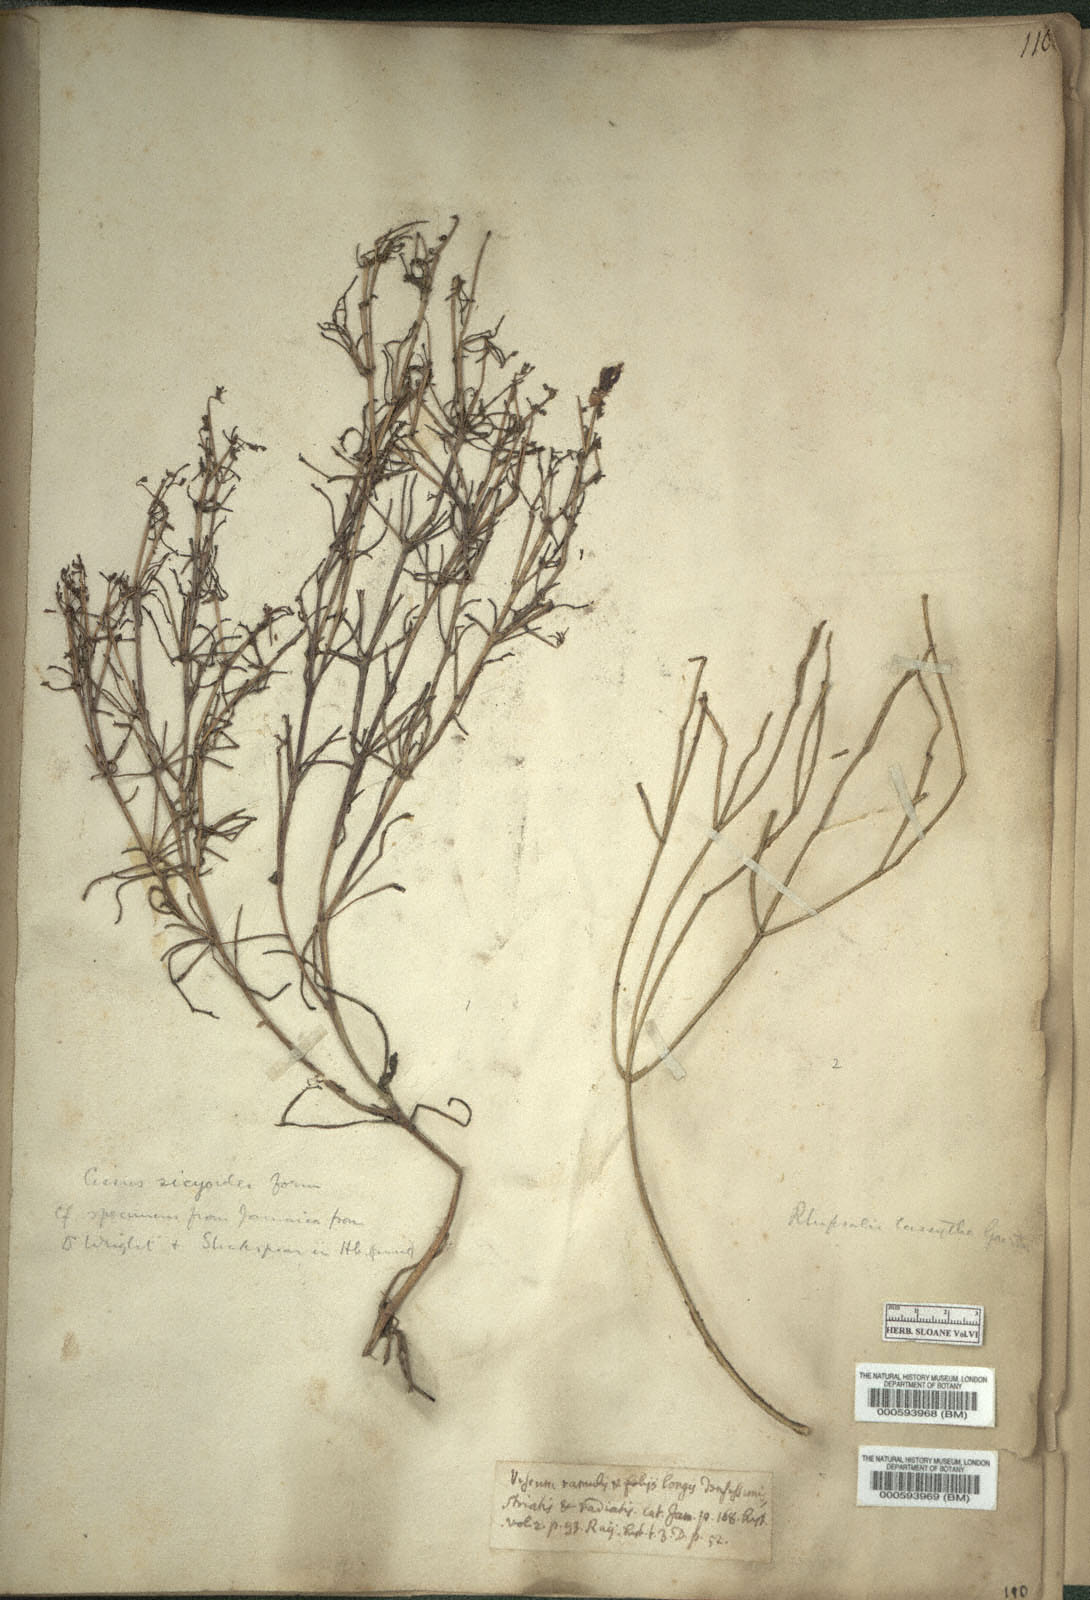 110
1
2
Cissus sicyoides form
Cf. specimens from Jamaica from
Dr Wright & Shakspear in Hb.
Rhipsalis cassytha Gaertn
HERB. SLOANE Vol.VI
THE NATURAL HISTORY MUSEUM, LONDON
DEPARTMENT OF BOTANY
000593968 (BM)
THE NATURAL HISTORY MUSEUM, LONDON
DEPARTMENT OF BOTANY
000593969 (BM)
Viscum ramulis & folijs longis densissimis,
striatis & radiatis. Cat. Jam. p. 168. hist.
vol. 2. p. 93. Raij. hist. t. 3. D. p. 52.
110